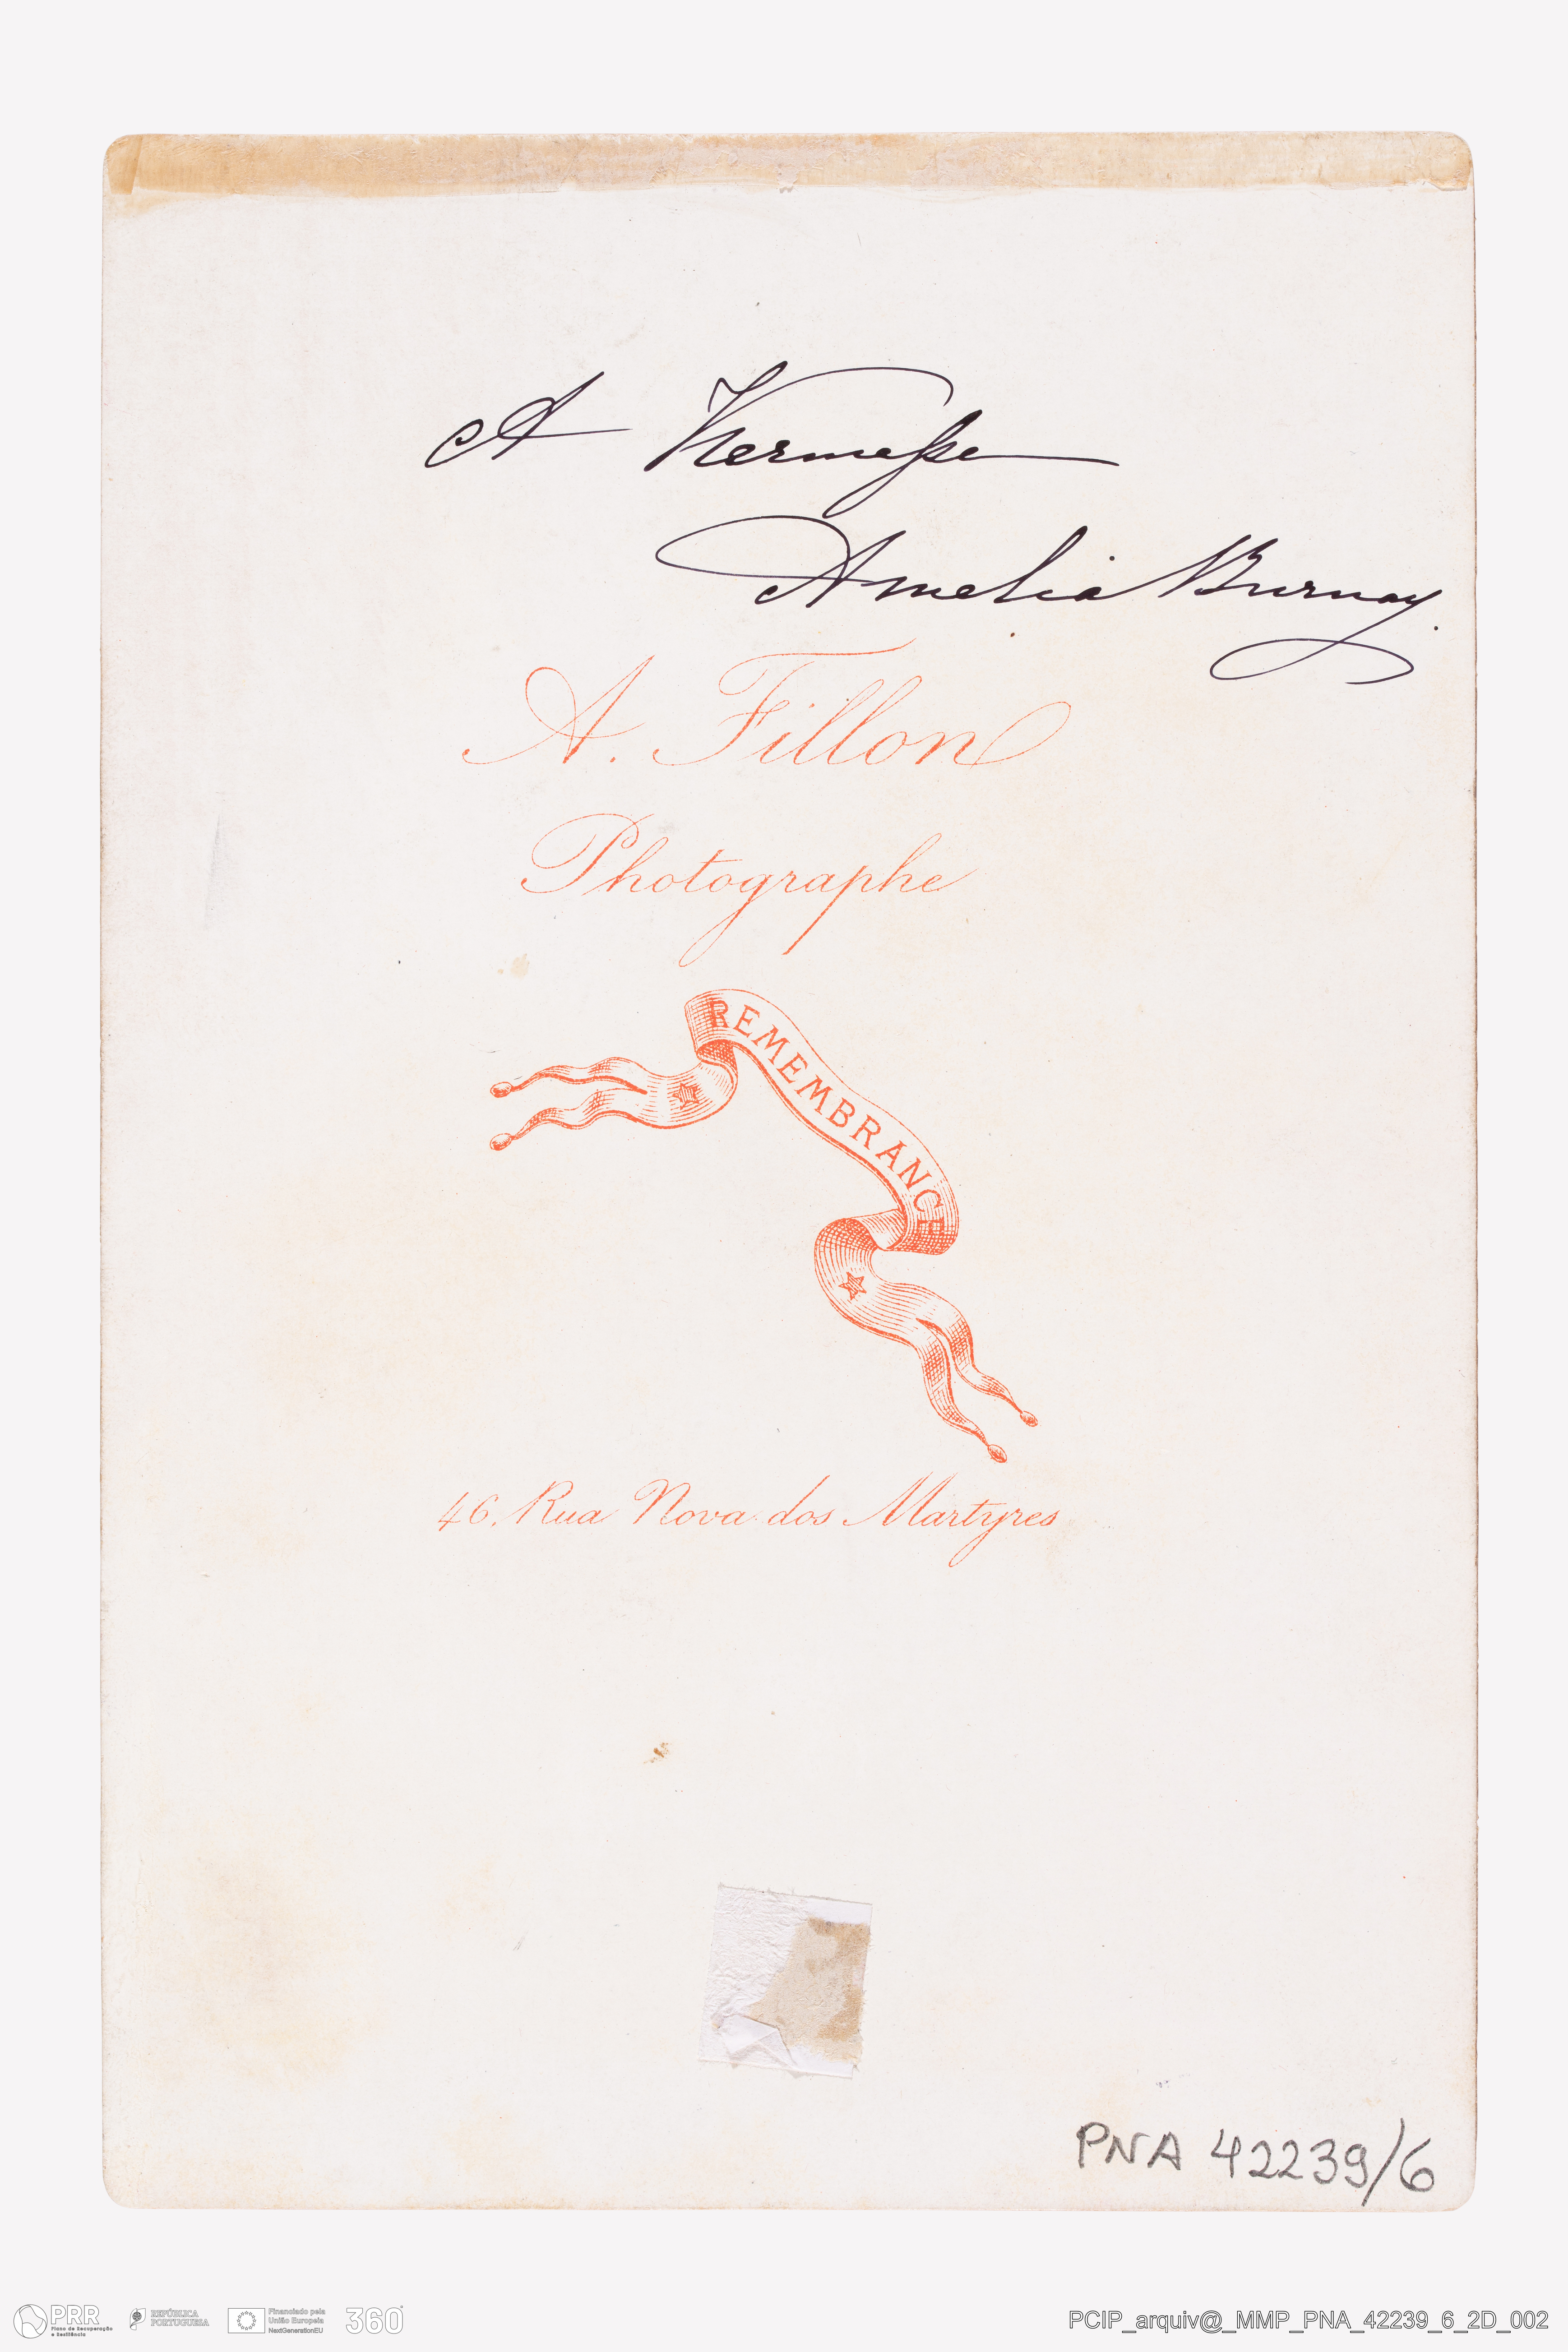 A Kermesse
Amelia Burnay.
A. Fillon
Photographe
REMEMBRANCE
46, Rua Nova dos Martyres
PNA 42239/6
PRR
Plano de Recuperação
e Resiliência
REPÚBLICA
PORTUGUESA
Financiado pela
União Europeia
NextGenerationEU
360°
PCIP_arquiv@_MMP_PNA_42239_6_2D_002